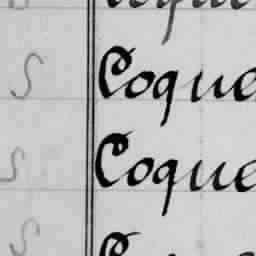 S Coque
S Coque
S